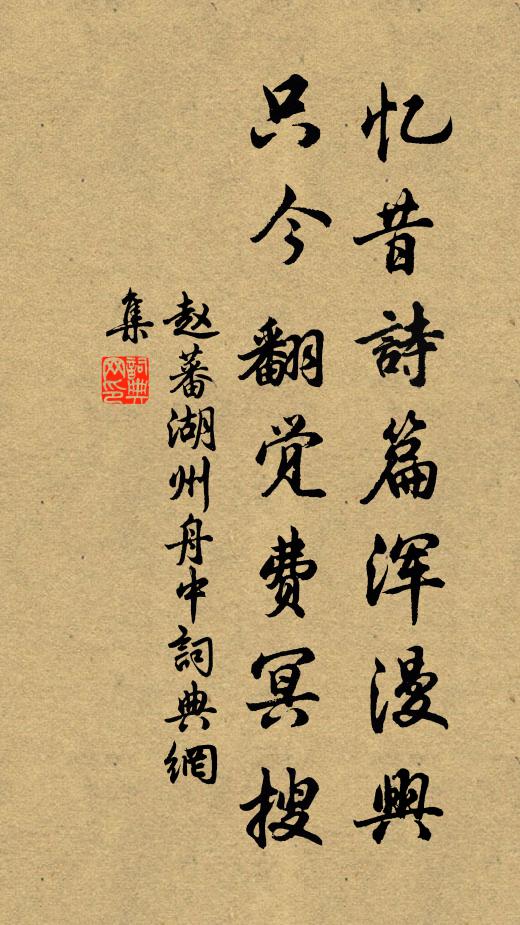 忆昔詩篇浑漫興
只今翻觉费冥搜
赵蕃湖州舟中詞典網
集
詞典网印